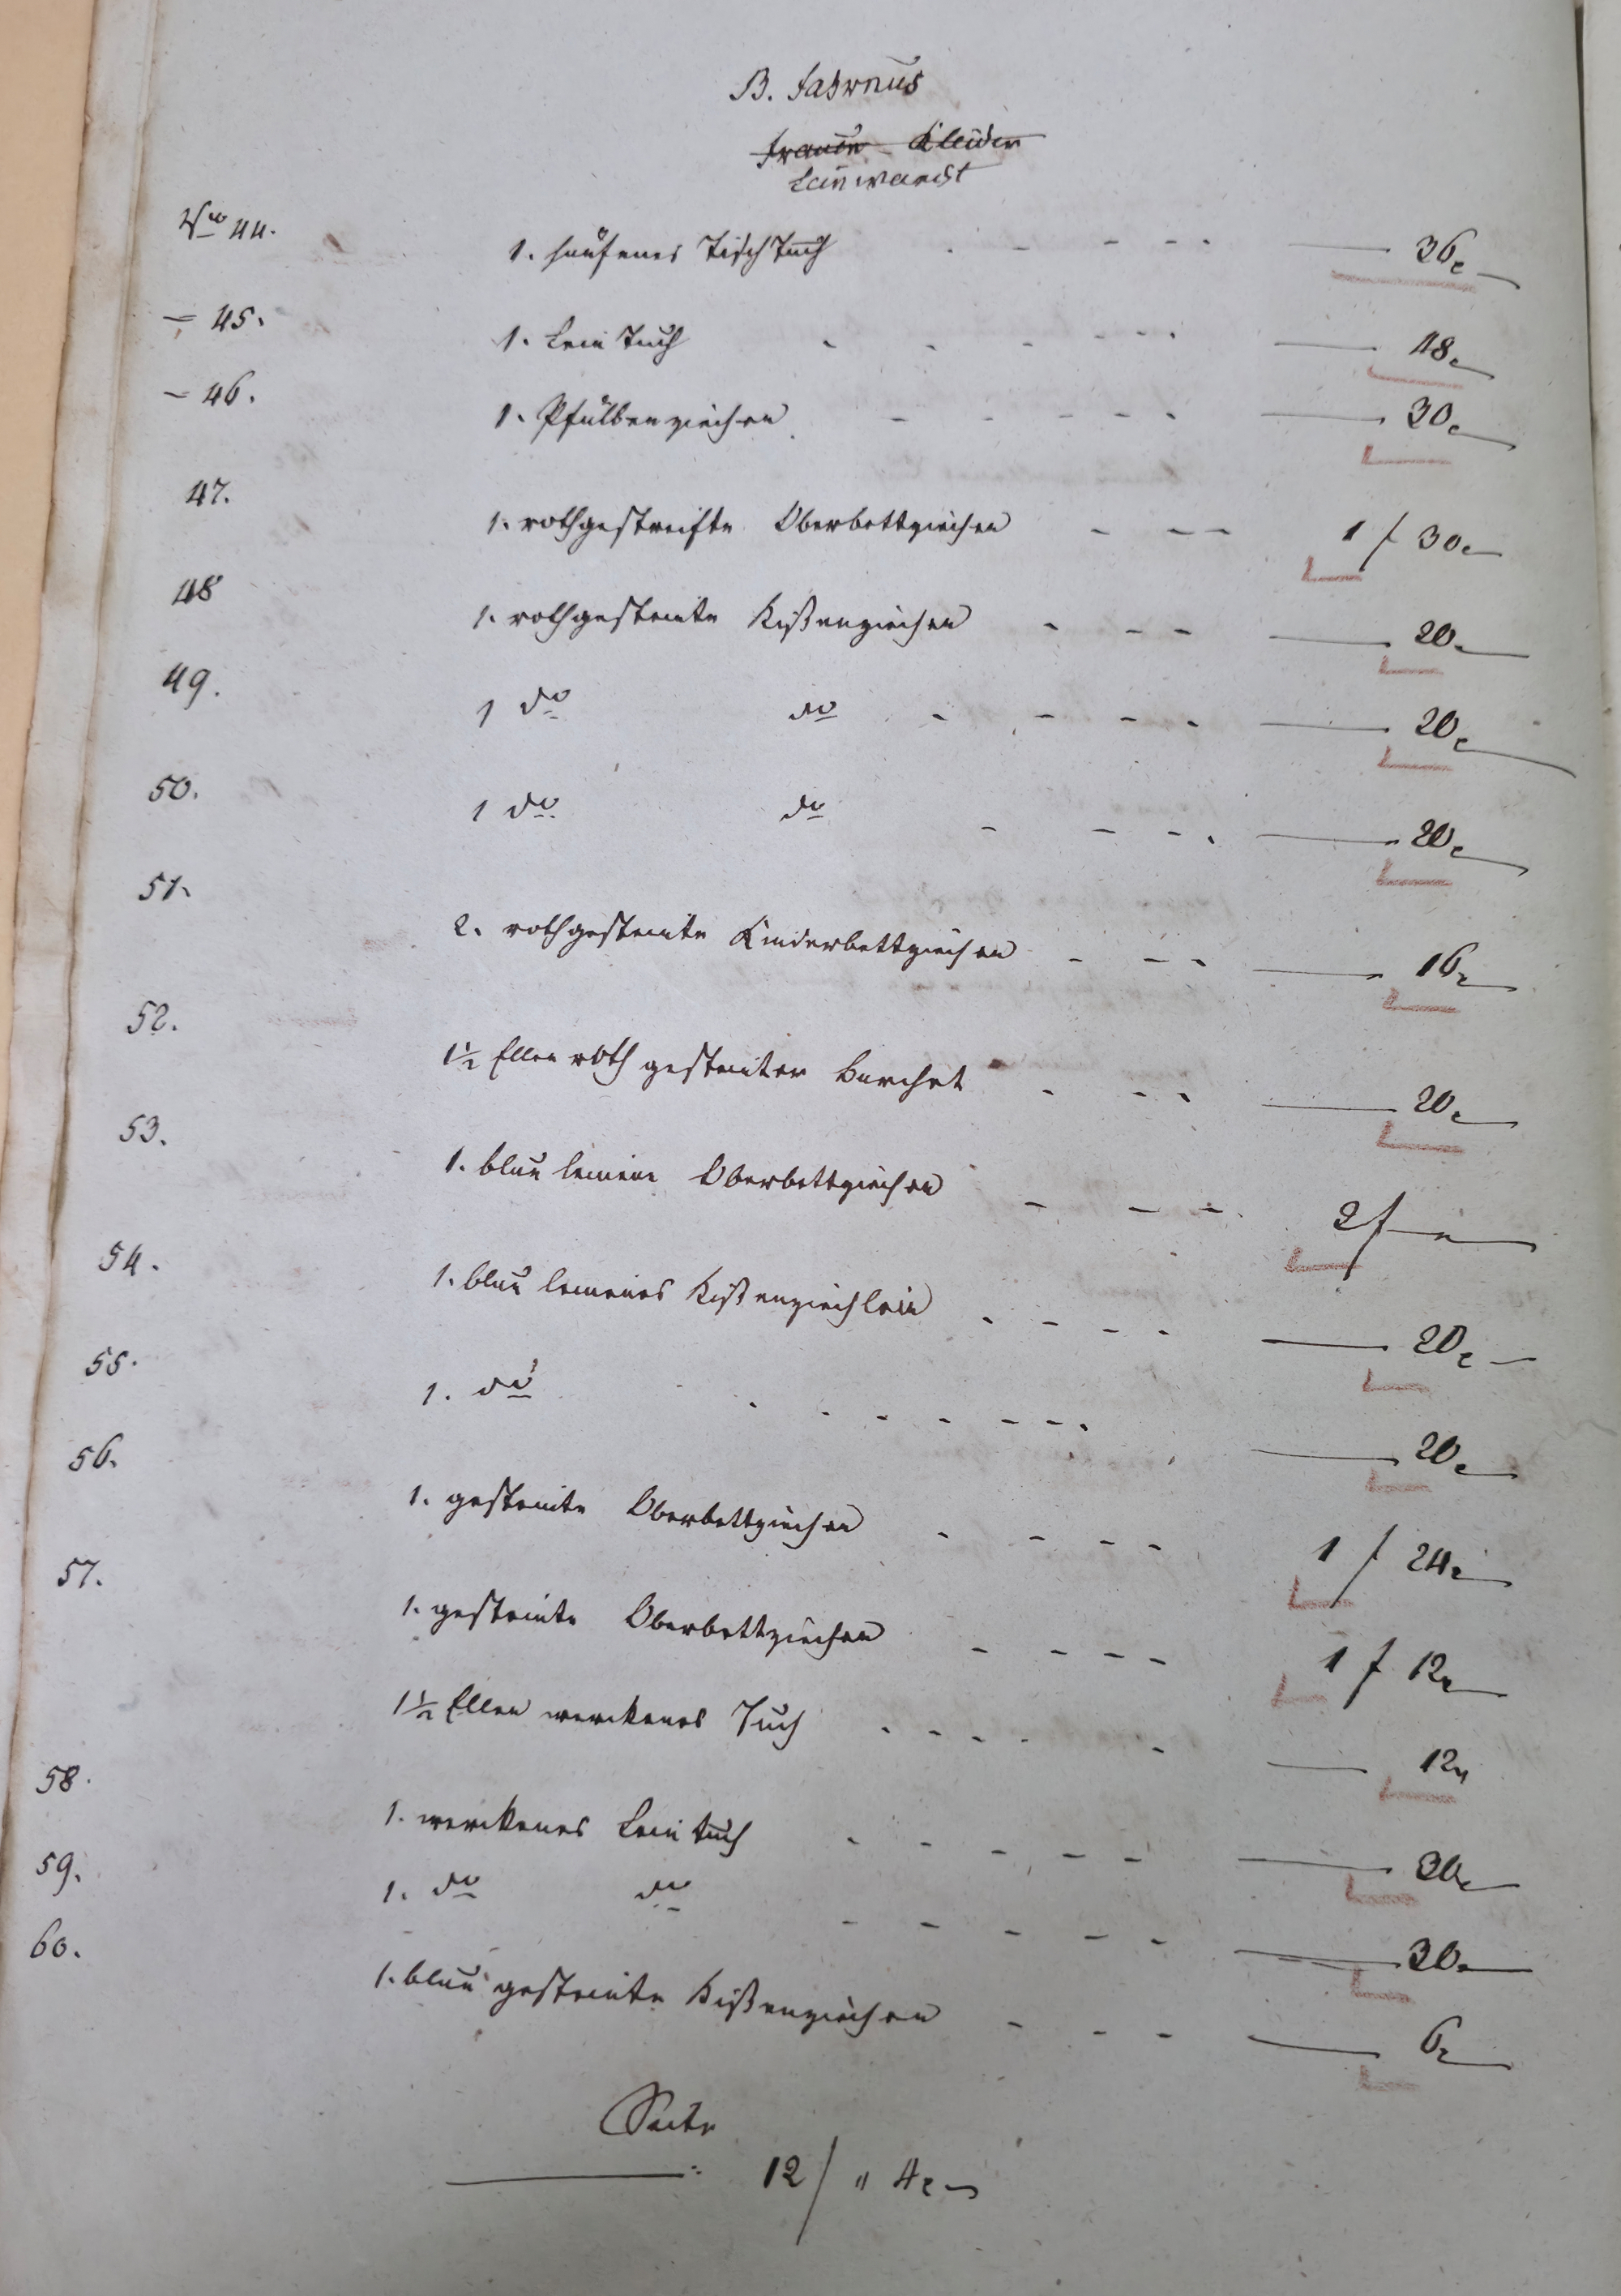 B. Fahrnus
Frauen Kleider
Leinwandt
No 44. 1. hänfenes Tisch Tuch - - - - - 36.
- 45. 1. Lein Tuch - - - - - 48.
- 46. 1. Pfülbenziechen - - - - - 30.
47. 1. rothgestreifte Oberbettziechen - - - 1 f 30.
48 1. rothgesteinte Kißenziechen - - - 20.
49. 1 do do - - - - 20.
50. 1 do do - - - - 20.
51. 2. rothgesteinte Kinderbettziechen - - - 16.
52. 1½ Ellen roth gesteinter Barchet - - - 20.
53. 1. blau leinene Oberbettziechen - - - 2 f -
54. 1. blau leinenes Kißenziechlein - - - - 20.
55. 1. do - - - - - - - 20.
56. 1. gesteinte Oberbettziechen - - - - 1 f 24.
57. 1. gesteinte Oberbettziechen - - - - 1 f 12.
1½ Ellen werckenes Tuch - - - - - 12.
58. 1. werckenes Leintuch - - - - - 30.
59. 1. do do - - - - - 30.
60. 1. blau gesteinte Kißenziechen - - - 6.
Seite
12 f " 4.